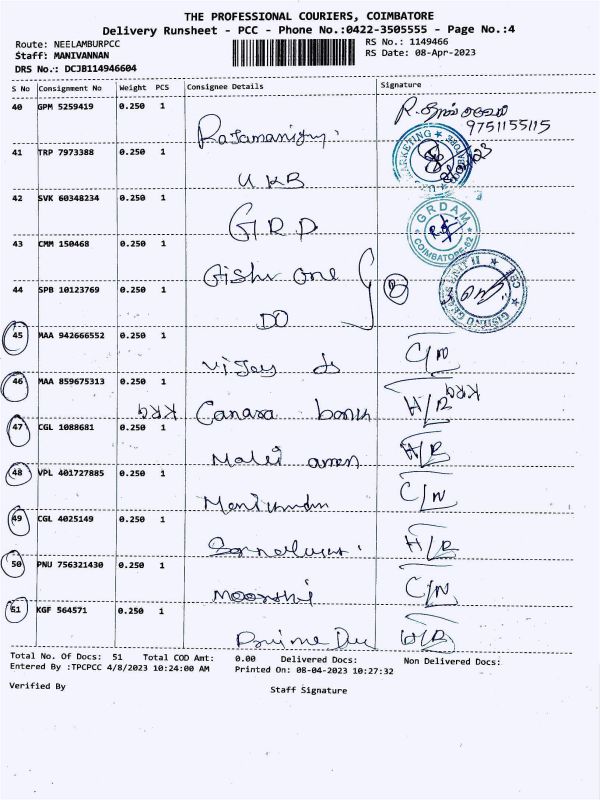 THE PROFESSIONAL COURIERS, COIMBATORE
Delivery Runsheet - PCC - Phone No.:0422-3505555 - Page No.:4
Route: NEELAMBURPCC
RS No.: 1149466
Staff: MANIVANNAN
RS Date: 08-Apr-2023
DRS No.: DCJB114946604
S No Consignment No Weight PCS Consignee Details Signature
40 GPM 5259419 0.250 1
9751155115
41 TRP 7973388 0.250 1
UKB
42 SVK 60348234 0.250 1
G.R.D
GRDAM
COIMBATORE-62
43 CMM 150468 0.250 1
Gishu One
44 SPB 10123769 0.250 1
DO
UNIT II
45 MAA 942666552 0.250 1
Vijay ds C/N
46 MAA 859675313 0.250 1
KRG Canara bank H/R KRG
47 CGL 1088681 0.250 1
H/R
48 VPL 401727885 0.250 1
C/N
49 CGL 4025149 0.250 1
H/R
50 PNU 756321430 0.250 1
C/N
51 KGF 564571 0.250 1
H/R
Total No. Of Docs: 51 Total COD Amt: 0.00 Delivered Docs: Non Delivered Docs:
Entered By :TPCPCC 4/8/2023 10:24:00 AM Printed On: 08-04-2023 10:27:32
Verified By
Staff Signature